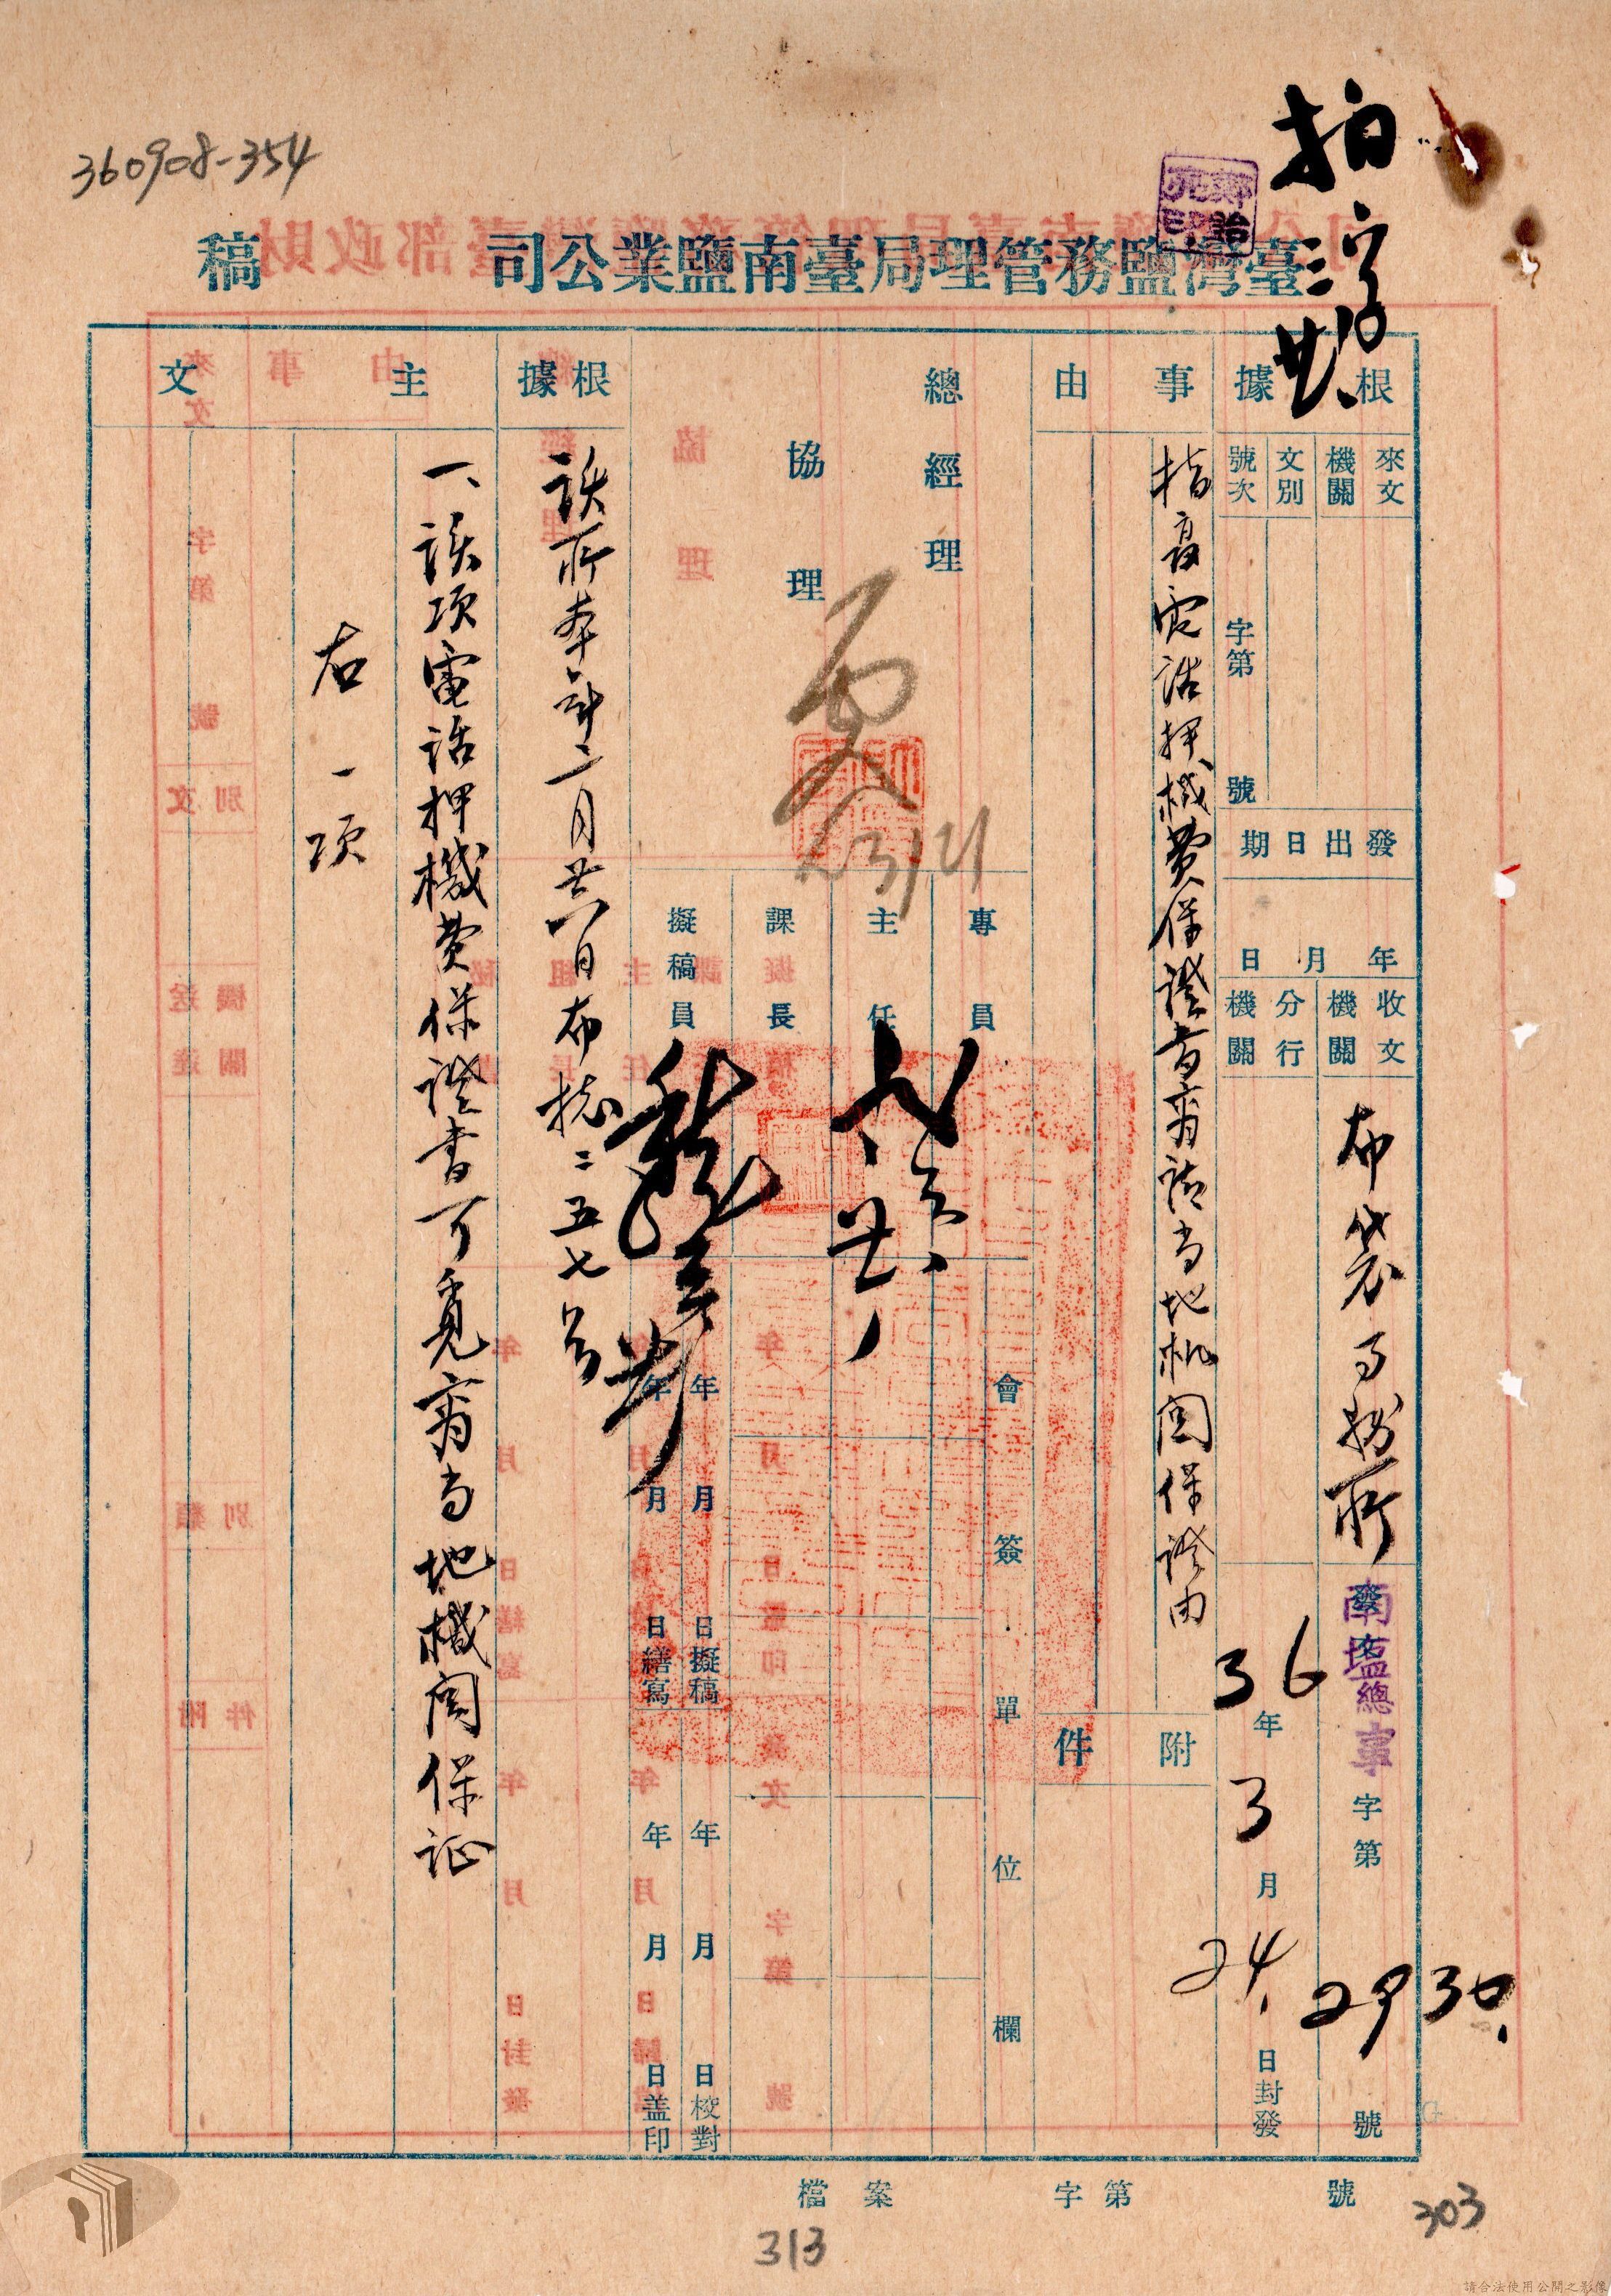 360908-354
拍字
三
廿、
臺灣鹽務管理局臺南鹽業公司 稿
根據
來文機關
文別
號次
字第
號
發出日期
年 月 日
收文機關
布袋事務所
分行機關
發文
南塩總
事
字第
2930.
號
36年3月24.日封發
事由
指复電話押機費保證書商請当地机関保證由
附件
總經理
協理
3/21
專員
主任
課長
擬稿員
會簽單位欄
年 月 日擬稿
年 月 日繕寫
年 月 日校對
年 月 日蓋印
根據
該所本年二月廿八日布總二五七号
主文
一、該項電話押機費保證書可覓商当地機関保证
右一項
檔案 字第 號
313
303
請合法使用公開之影像